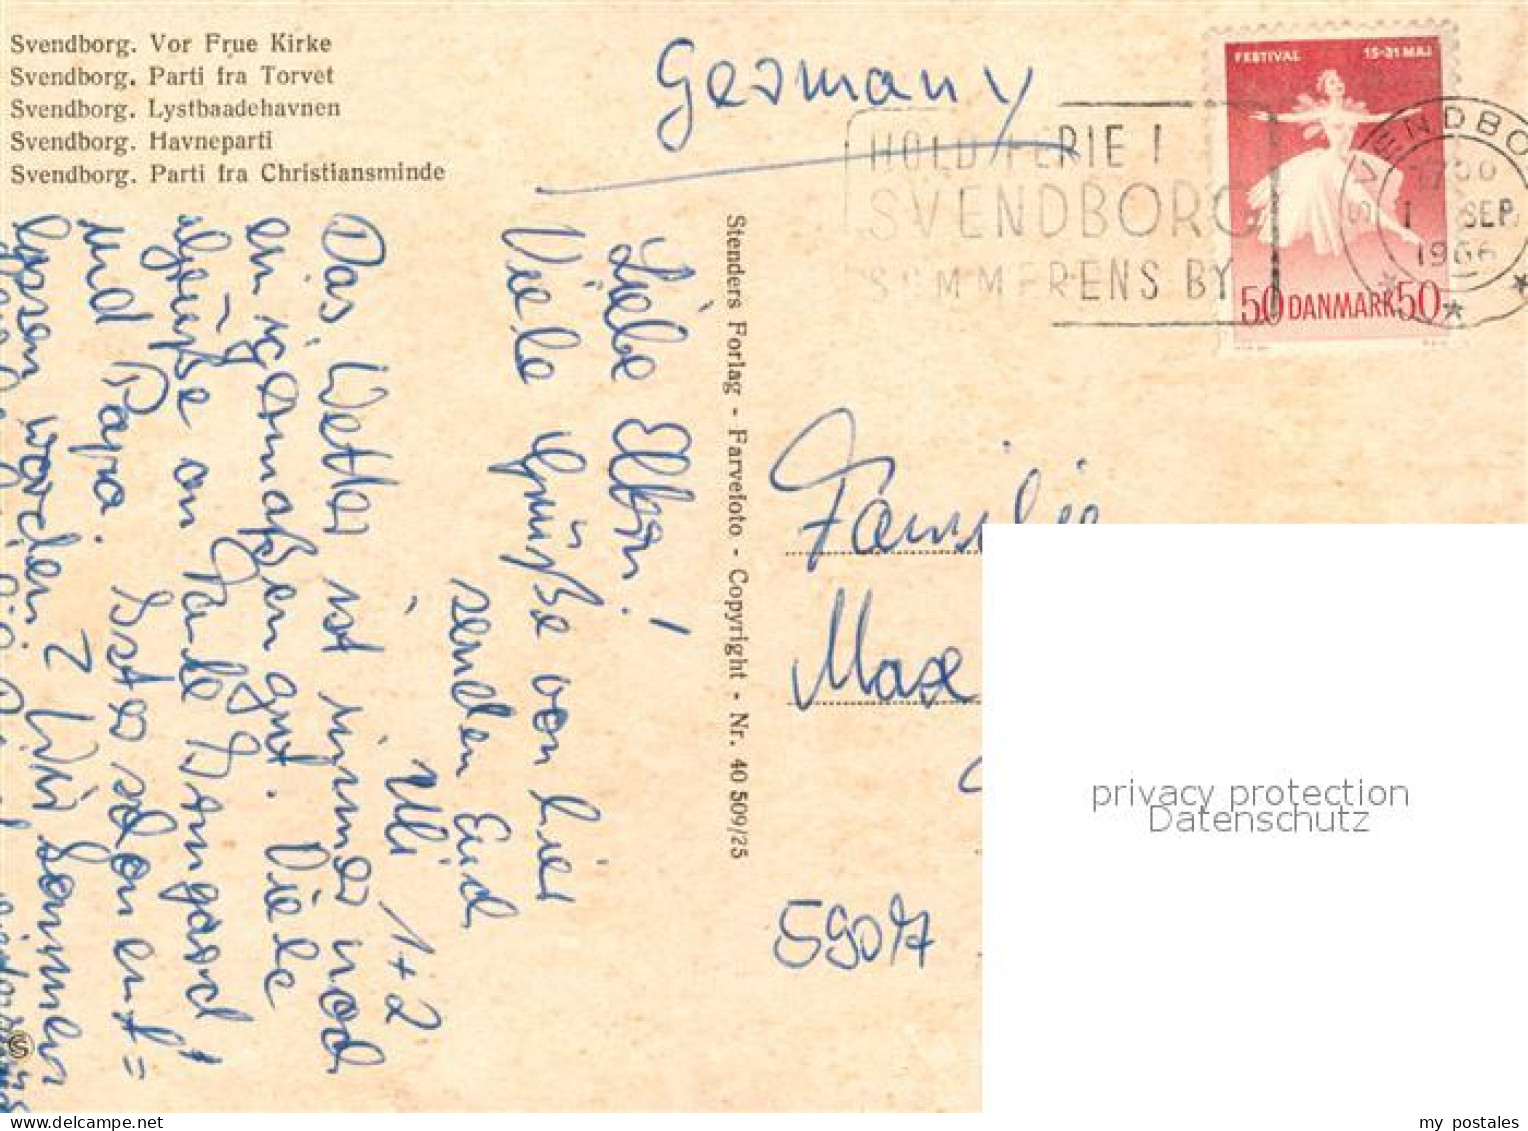 Svendborg. Vor Frue Kirke
Svendborg. Parti fra Torvet
Svendborg. Lystbaadehavnen
Svendborg. Havneparti
Svendborg. Parti fra Christiansminde
Germany
HOLD FERIE I
SVENDBORG
SOMMERENS BY
FESTIVAL 15-31 MAJ
50 DANMARK 50
SVENDBO
1 SEP
1966
Stenders Forlag - Farvefoto - Copyright - Nr. 40 509/25
Liebe Eltern!
Viele Grüße von hier
senden Euch
Uli 1+2
Das Wetter ist immer noch
einigermaßen gut. Viele
Grüße an Tante Irmgard
und Papa. Ist er schon ent=
lassen worden? Wir kommen
Familie
Max
5907
privacy protection
Datenschutz
my postales